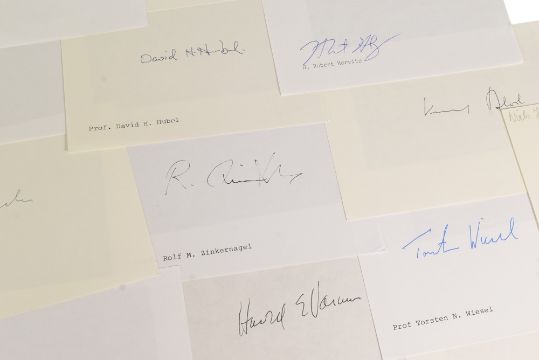 David H. Hubel
Prof. David H. Hubel
H. Robert Horvitz
R. Zinkernagel
Rolf M. Zinkernagel
Harold E Varmus
Torsten Wiesel
Prof Torsten N. Wiesel